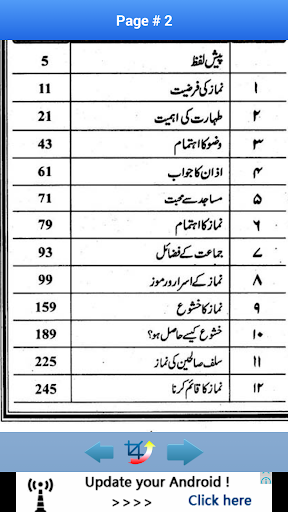 Page # 2
پیش لفظ 5
۱ نماز کی فرضیت 11
۲ طہارت کی اہمیت 21
۳ وضو کا اہتمام 43
۴ اذان کا جواب 61
۵ مساجد سے محبت 71
۶ نماز کا اہتمام 79
۷ جماعت کے فضائل 93
۸ نماز کے اسرار ورموز 99
۹ نماز کا خشوع 159
۱۰ خشوع کیسے حاصل ہو؟ 189
۱۱ سلف صالحین کی نماز 225
۱۲ نماز کا قائم کرنا 245
Update your Android !
>>>> Click here